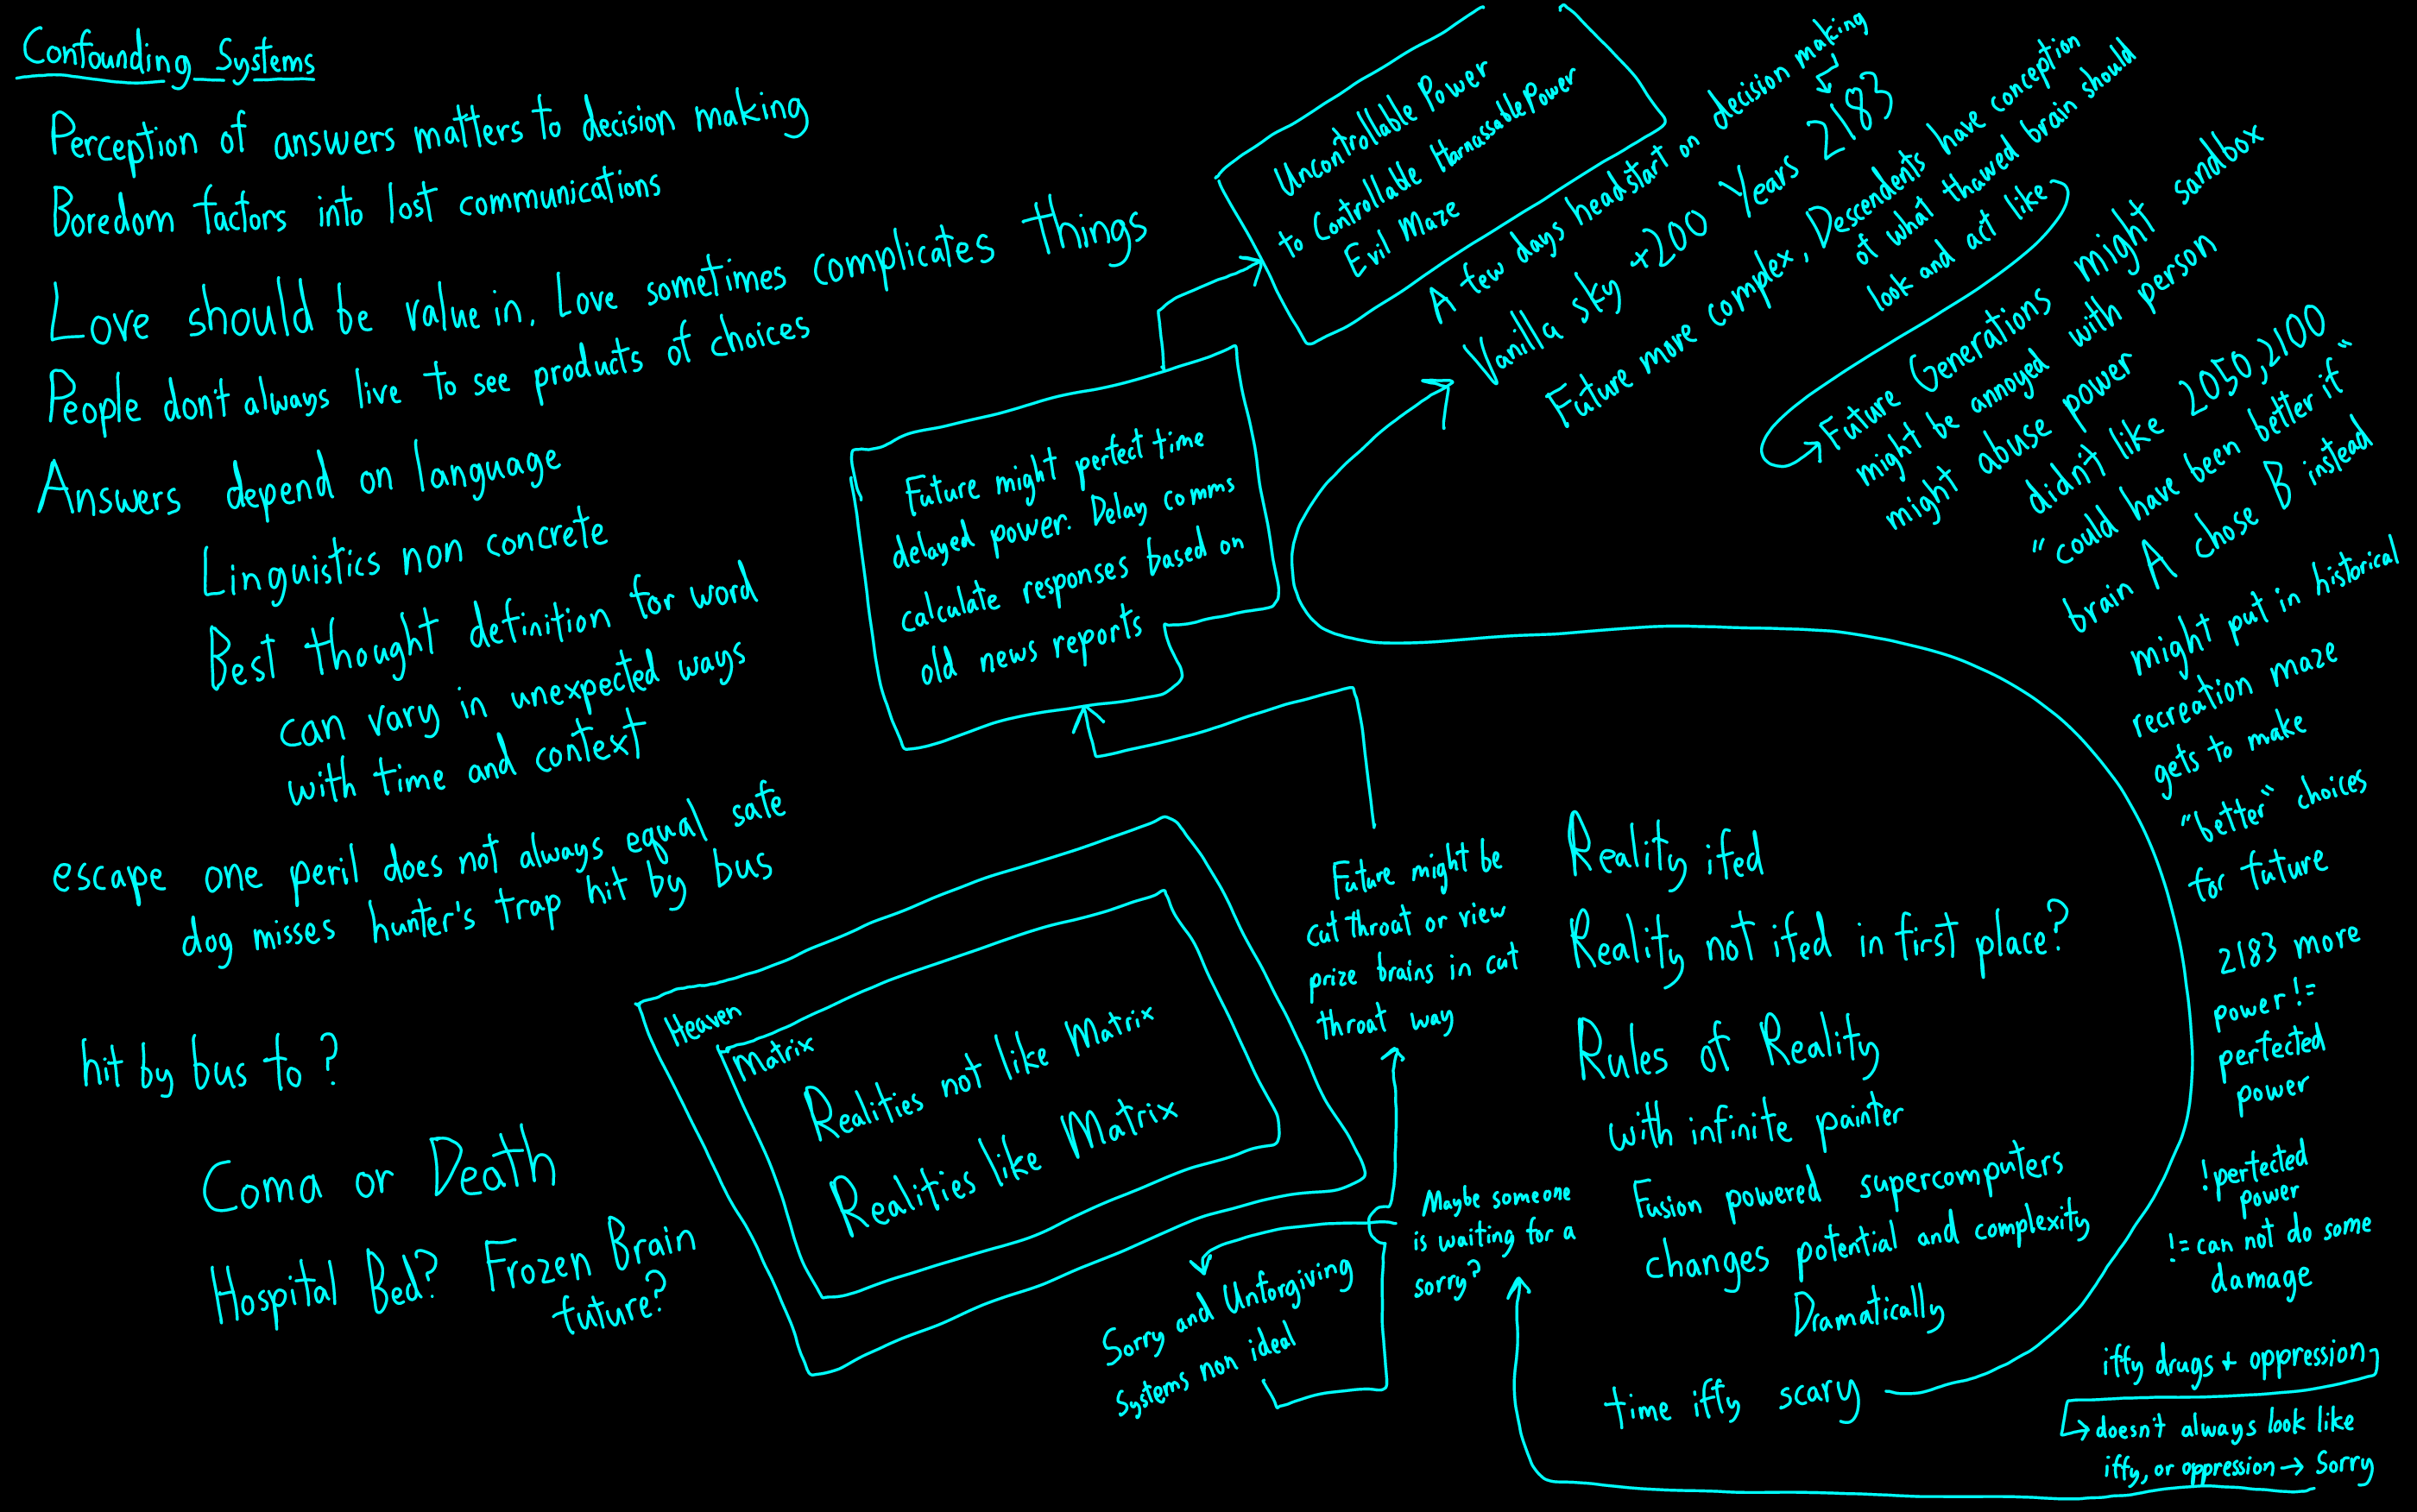 Confounding Systems
Perception of answers matters to decision making
Boredom factors into lost communications
Love should be value in, Love sometimes complicates things
People dont always live to see products of choices
Answers depend on language
Linguistics non concrete
Best thought definition for word
can vary in unexpected ways
with time and context
escape one peril does not always equal safe
dog misses hunter's trap hit by bus
hit by bus to ?
Coma or Death
Hospital Bed? Frozen Brain
future?
Heaven
Matrix
Realities not like Matrix
Realities like Matrix
Future might perfect time
delayed power. Delay comms
calculate responses based on
old news reports
Uncontrollable Power
to Controllable Harnassable Power
Evil Maze
A few days headstart on decision making
Vanilla sky +200 Years 2183
Future more complex, Descendents have conception
of what thawed brain should
look and act like
Future Generations might sandbox
might be annoyed with person
might abuse power
didn't like 2050,2100
"could have been better if"
brain A chose B instead
might put in historical
recreation maze
gets to make
"better" choices
for future
2183 more
power !=
perfected
power
!perfected
power
!= can not do some
damage
Future might be
cut throat or view
prize brains in cut
throat way
Reality ifed
Reality not ifed in first place?
Rules of Reality
with infinite painter
Fusion powered supercomputers
changes potential and complexity
Dramatically
time iffy scary
Maybe someone
is waiting for a
sorry?
Sorry and Unforgiving
Systems non ideal
iffy drugs + oppression
doesn't always look like
iffy, or oppression → Sorry